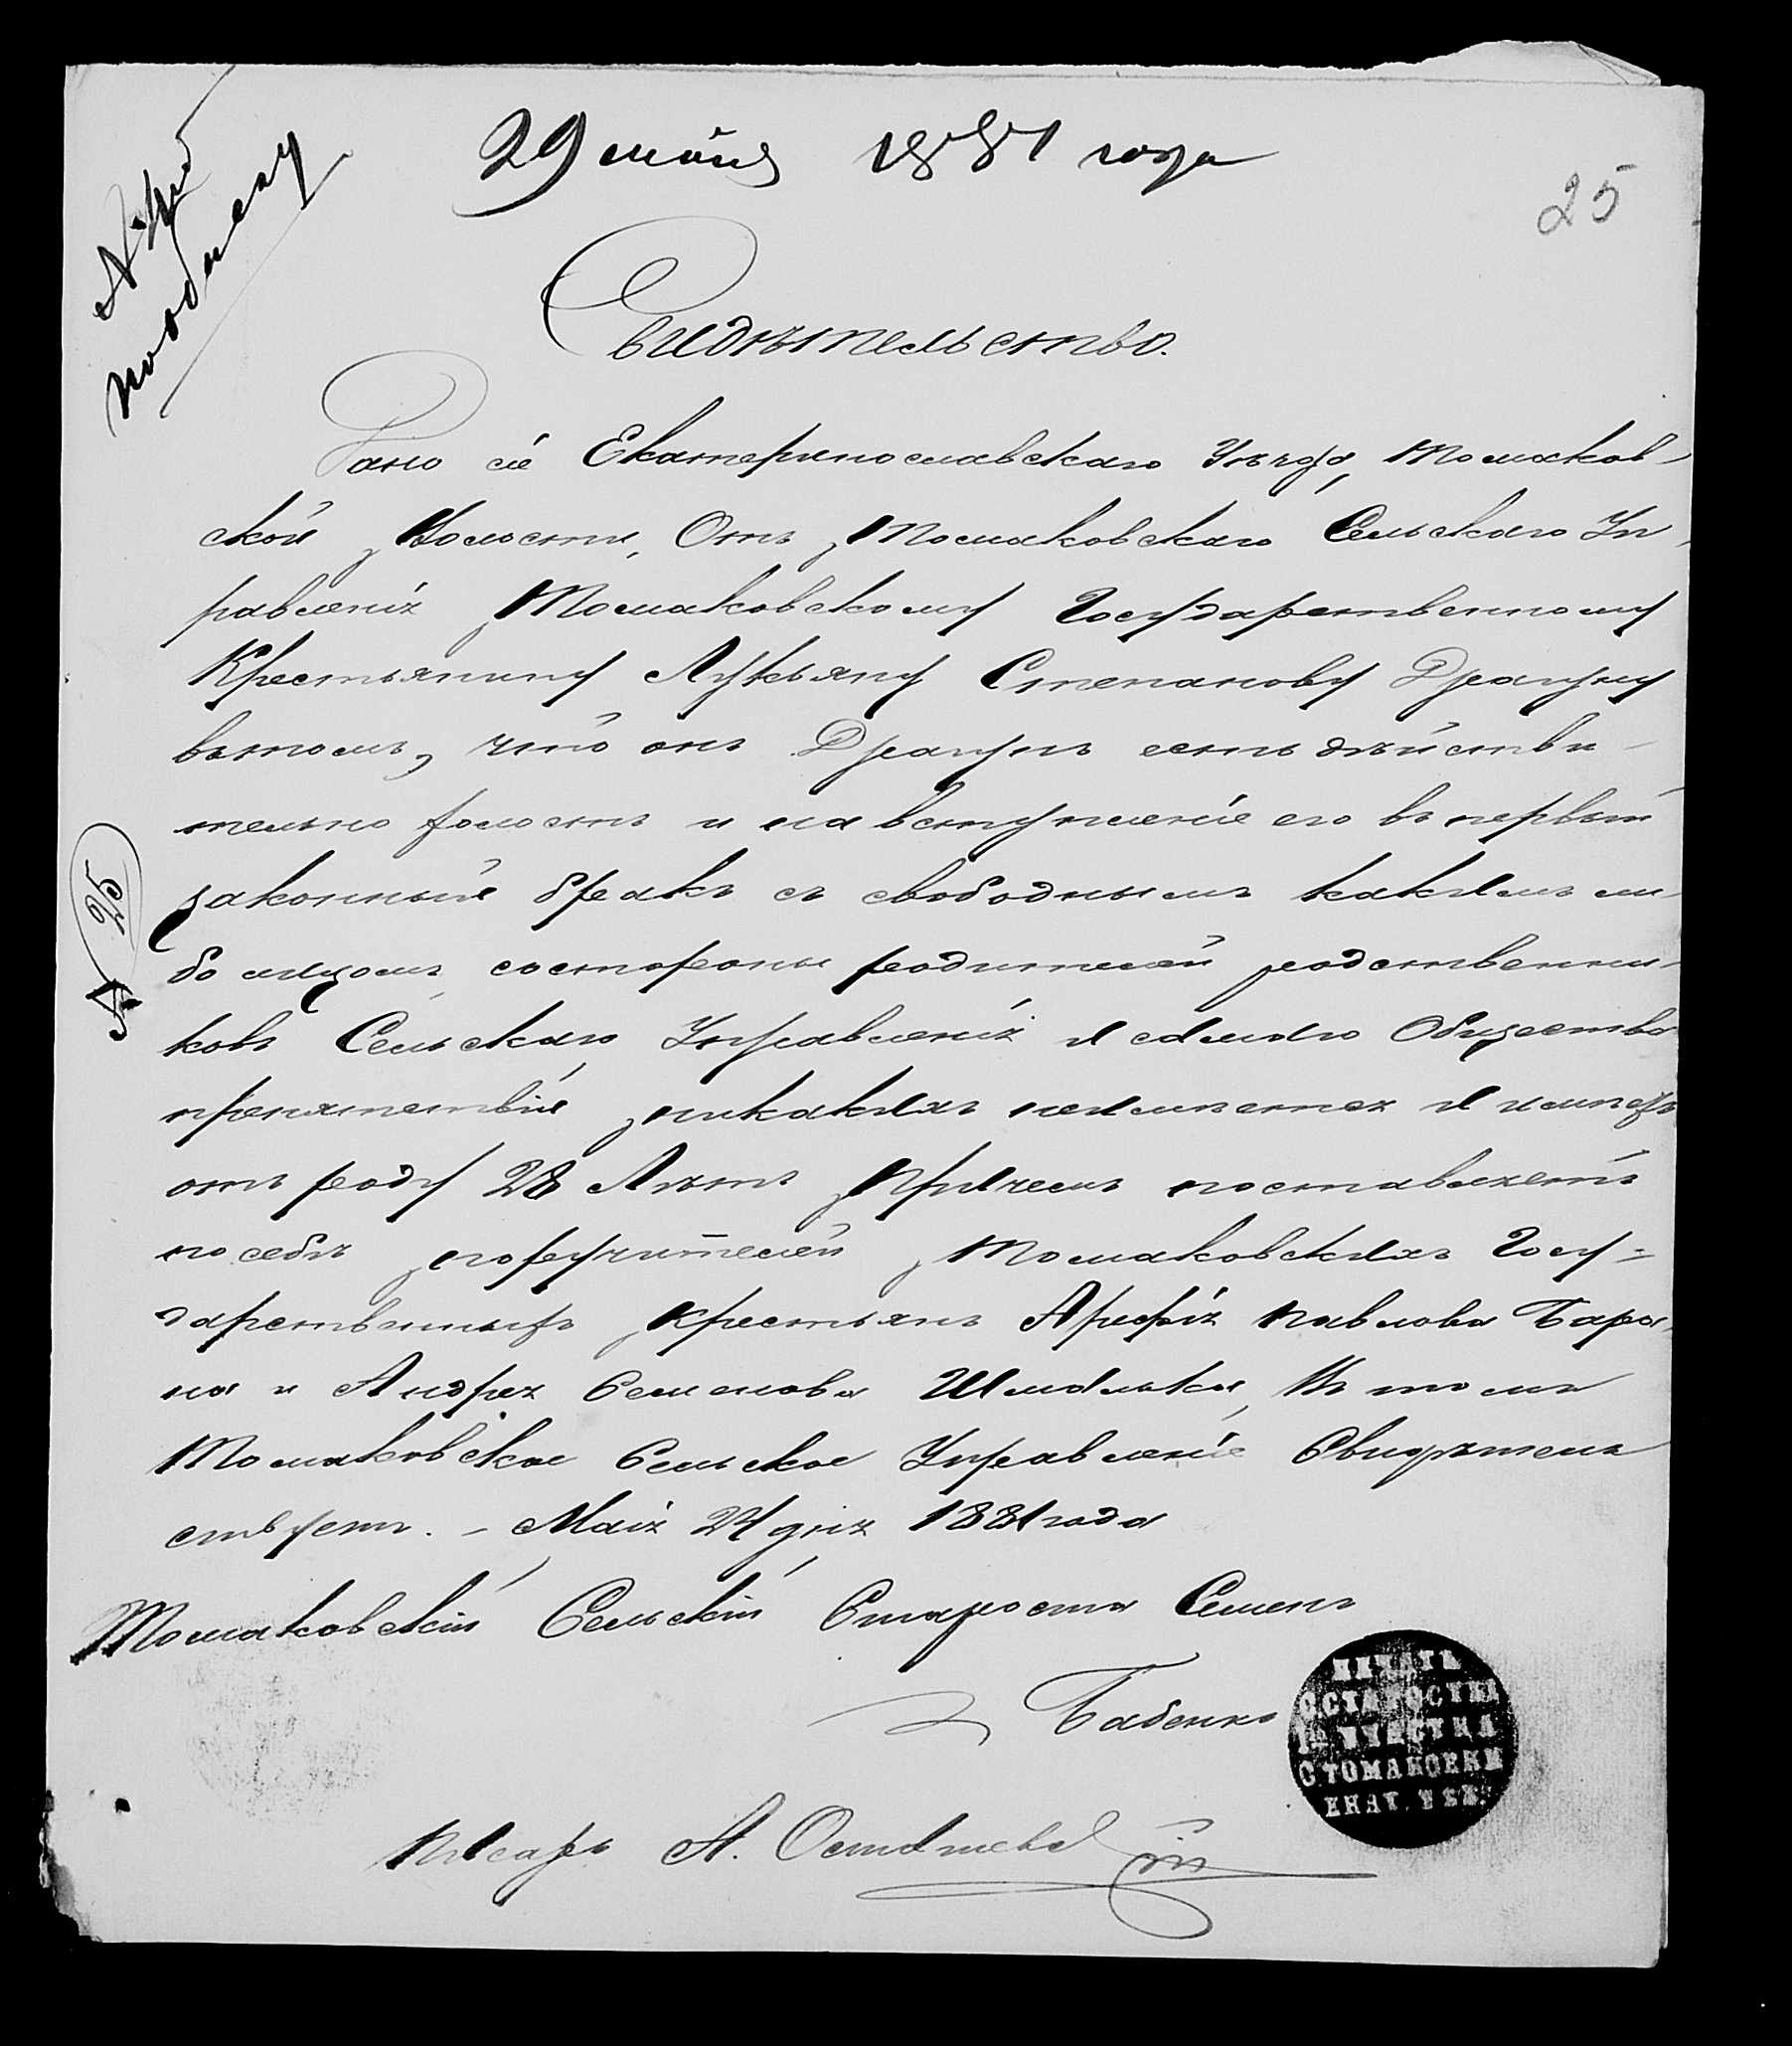 29 маія 1881 года
25
Свидѣтельство.
Дано сіе Екатеринославскаго Уѣзда, Томаков-
ской Волости, Отъ Томаковскаго Сельскаго Уп-
равленія Томаковскому Государственному
Крестьянину Лукьяну Степанову Драгуну
въ томъ, что онъ Драгунъ есть дѣйстви-
тельно холостъ и на вступленіе его въ первый
законный бракъ съ свободнымъ какимъ ли-
бо лицомъ состороны родителей родственни-
ковъ Сельскаго Управленія и самаго Общества
препятствій никакихъ неимѣется и имѣетъ
отъ роду 28 Лѣтъ Причемъ поставляетъ
по себѣ поручителей Томаковскихъ Госу-
дарственныхъ крестьянъ Арефія Павлова Бара-
на и Андрея Семенова Шмалька, Въ томъ
Томаковское Сельское Управленіе Свидѣтель
ствуетъ. - Маія 24 дня 1881 года
Томаковскій Сельскій Староста Семенъ
Бабенко
ПЕЧАТЬ
С СТАРОСТЫ
1го УЧАСТКА
С ТОМАКОВКИ
ЕКАТ. УѢЗ.
Писарь А.
№ 25